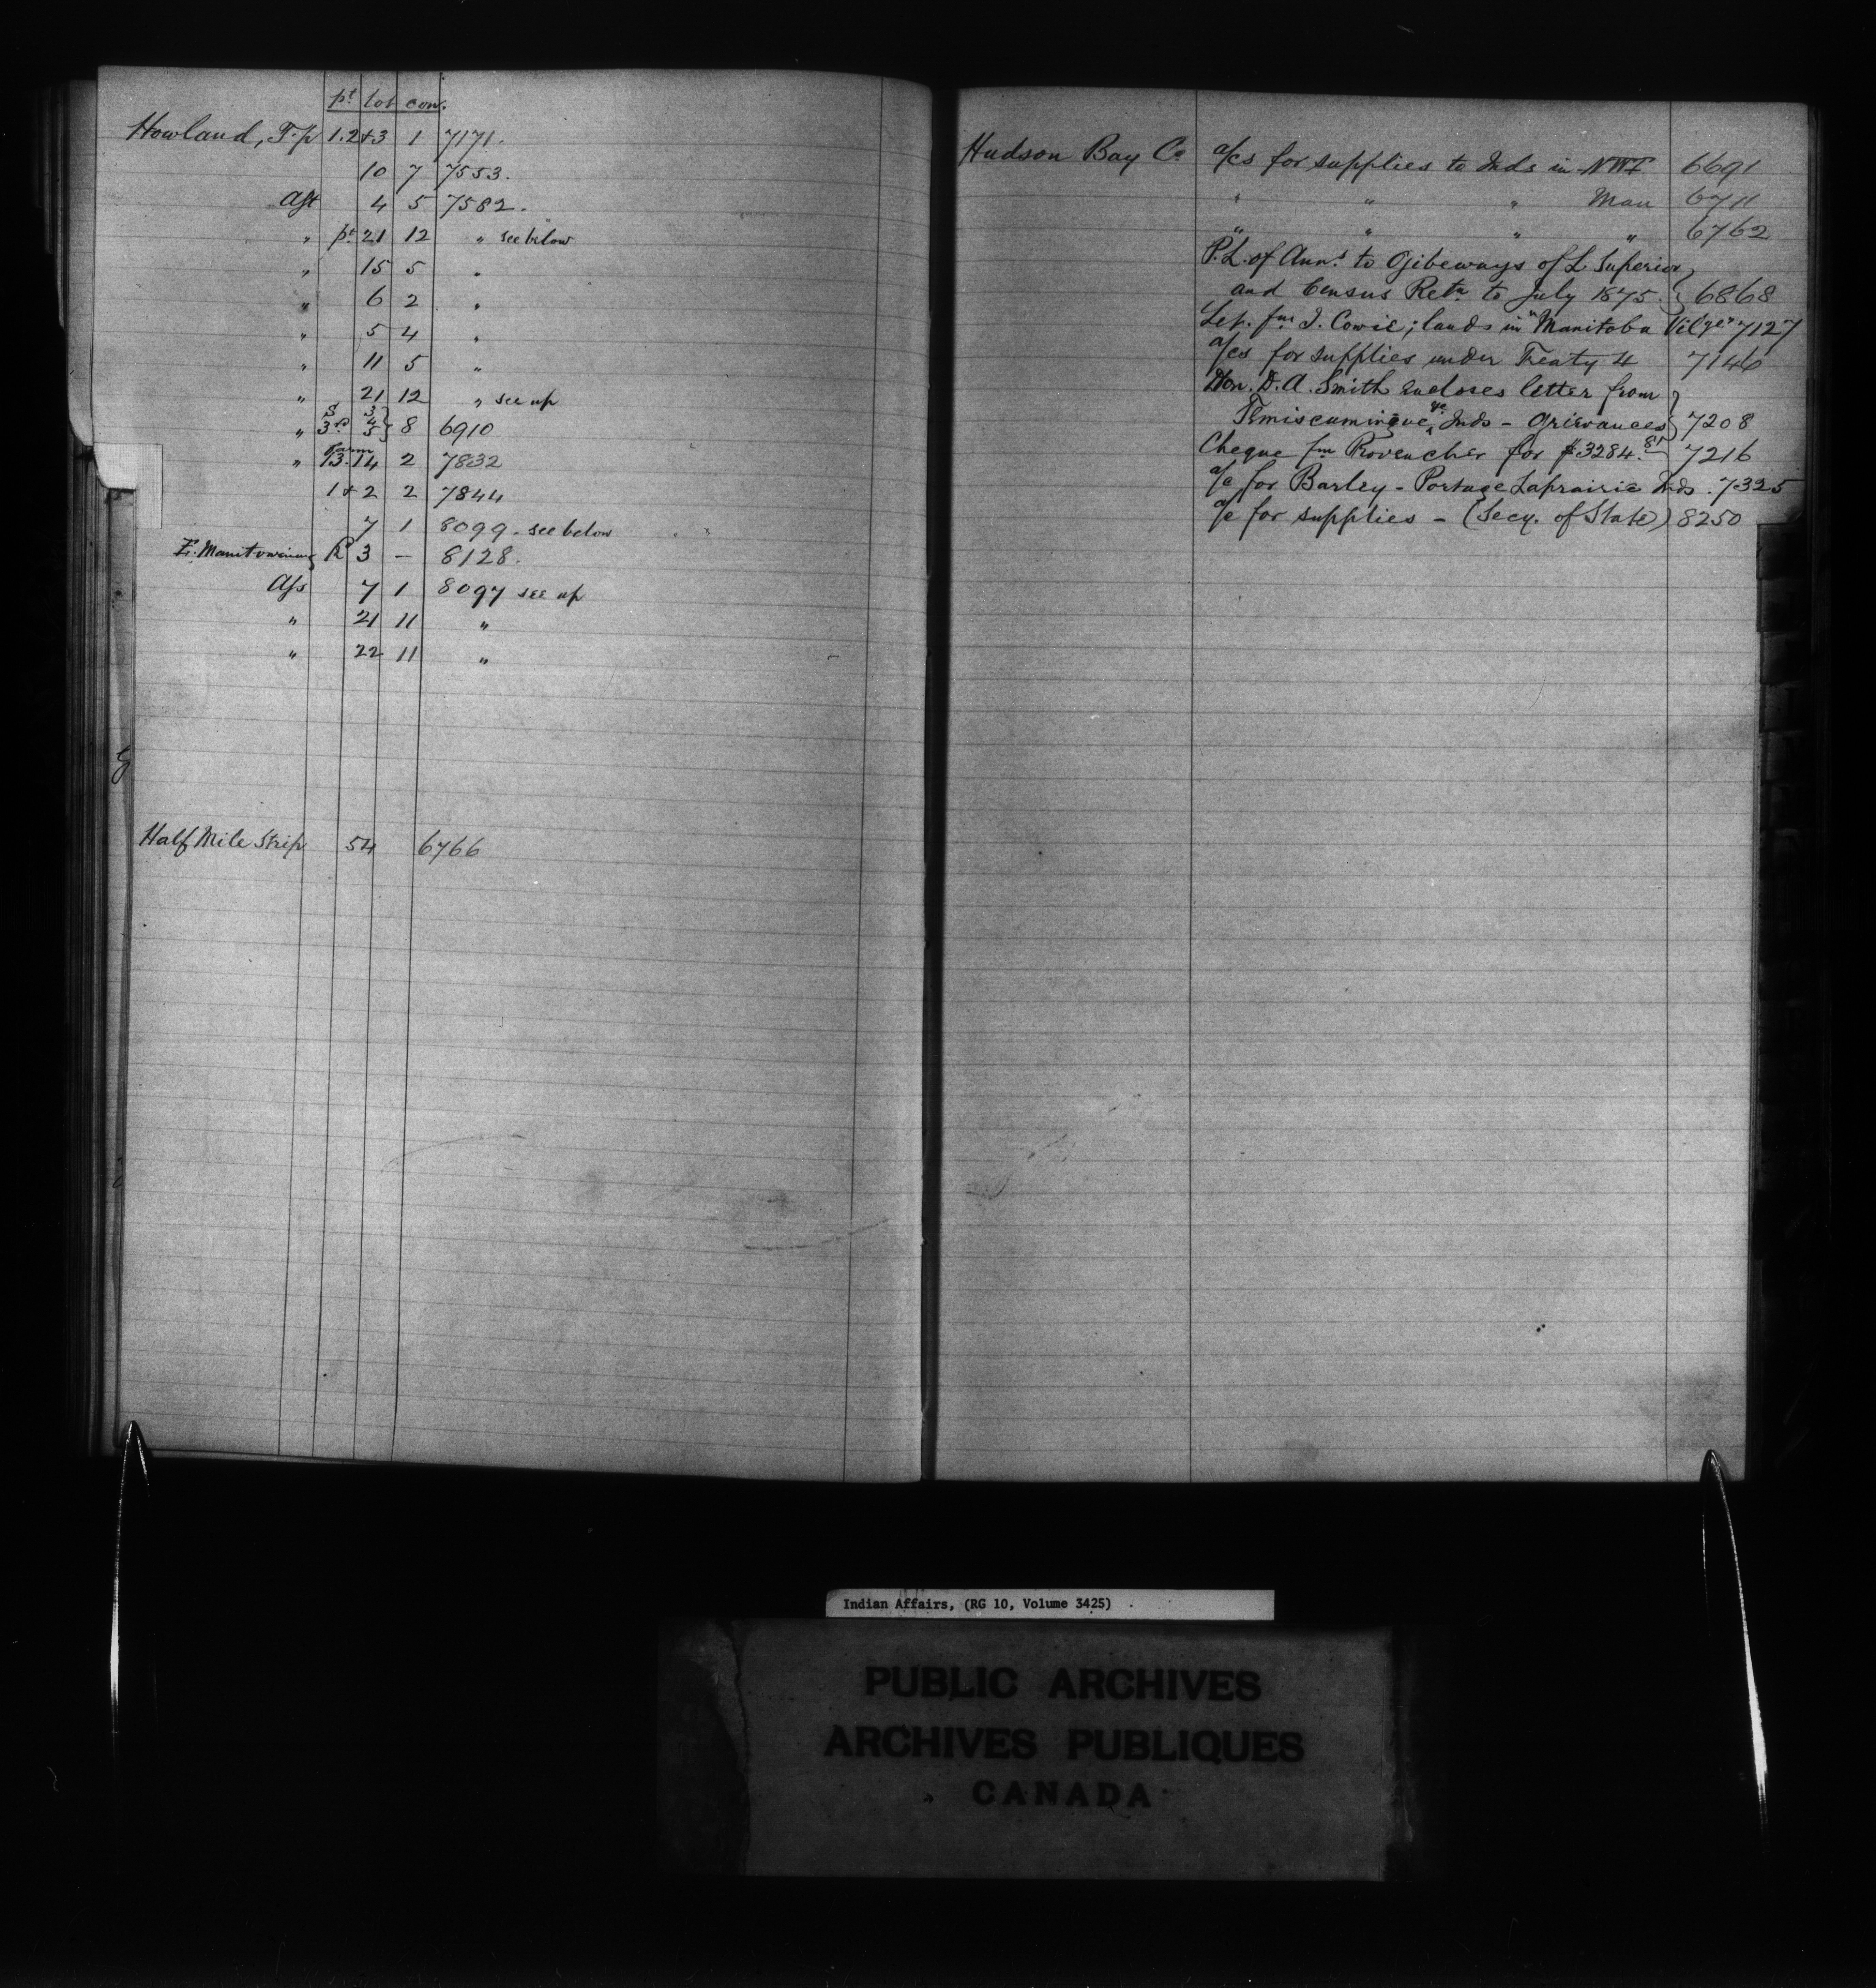 pt lot con.
Howland, T-p 1.2+3 1 7171.
10 7 7553.
Ass 4 5 7582.
" pt 21 12 " see below
" 15 5 "
" 6 2 "
" 5 4 "
" 11 5 "
" 21 12 " see up
" 8 6910
" Farm 13.14 2 7832
1+2 2 7844
7 1 8099. see below
E. Manitowaning R 3 - 8128.
Ass 7 1 8097 see up
" 21 11 "
" 22 11 "
Half Mile Strip 54 6766
Hudson Bay Co a/cs for supplies to Inds in NWT 6691
" " " Man 6711
" " " " 6762
P.L. of Ann.s to Ojibeways of L Superior,
and Census Retn to July 1875. } 6868
Let. fm I. Cowie; lands in "Manitoba Vil'ge" 7127
a/cs for supplies under Treaty 4 7146
Hon. D. A. Smith encloses letter from
Temiscamingue Inds - Grievances } 7208
Cheque fm Provencher for $3284.81 7216
a/c for Barley - Portage Laprairie Inds. 7325
a/c for supplies - (Secy. of State) 8250
Indian Affairs, (RG 10, Volume 3425)
PUBLIC ARCHIVES
ARCHIVES PUBLIQUES
CANADA